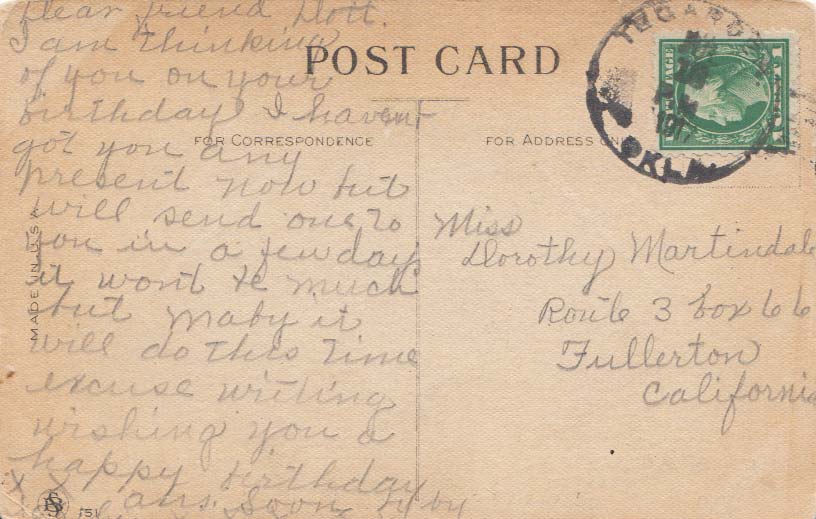 Dear friend Dott.
I am thinking
of you on your
birthday I havent
got you any
present now but
will send one to
you in a few day
it wont be much
but maby it
will do this time
excuse writing
wishing you a
happy birthday
x x ans. Soon by by
POST CARD
FOR CORRESPONDENCE
FOR ADDRESS ONLY
MADE IN U.S.A.
OKLA.
1917
Miss
Dorothy Martindale
Route 3 box 66
Fullerton
California
151